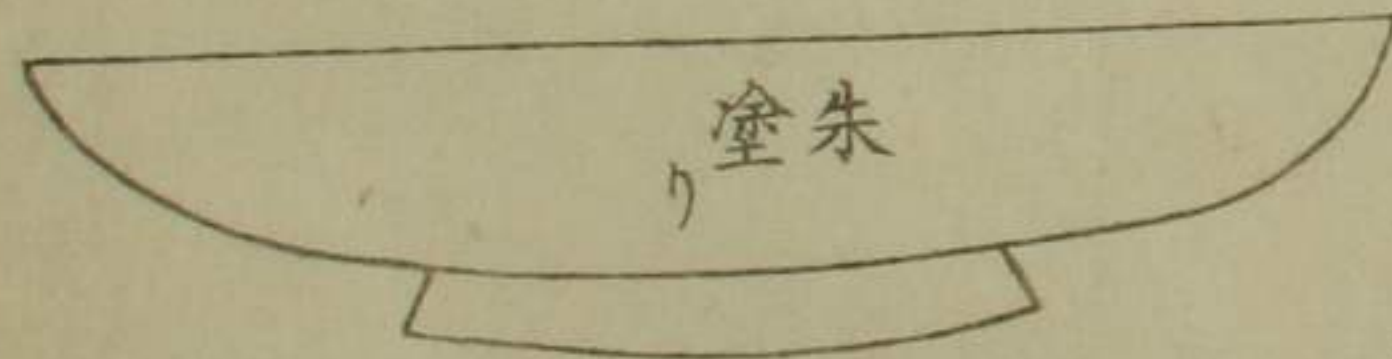 朱塗り